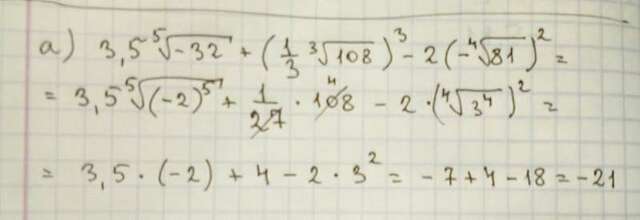 а) 3,5 ⁵√-32 + (1/3 ³√108)³ - 2(-⁴√81)² =
= 3,5 ⁵√(-2)⁵ + 1/27 · 108 4 - 2 · (⁴√3⁴)² =
= 3,5 · (-2) + 4 - 2 · 3² = -7 + 4 - 18 = -21